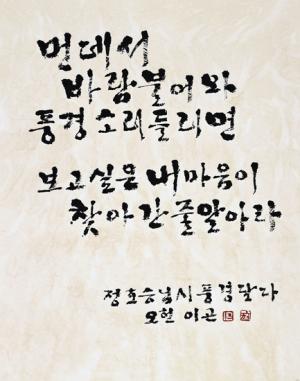 먼데서
바람불어와
풍경소리들리면
보고싶은내마음이
찾아간줄알아라
정호승님시풍경달다
오현 이곤